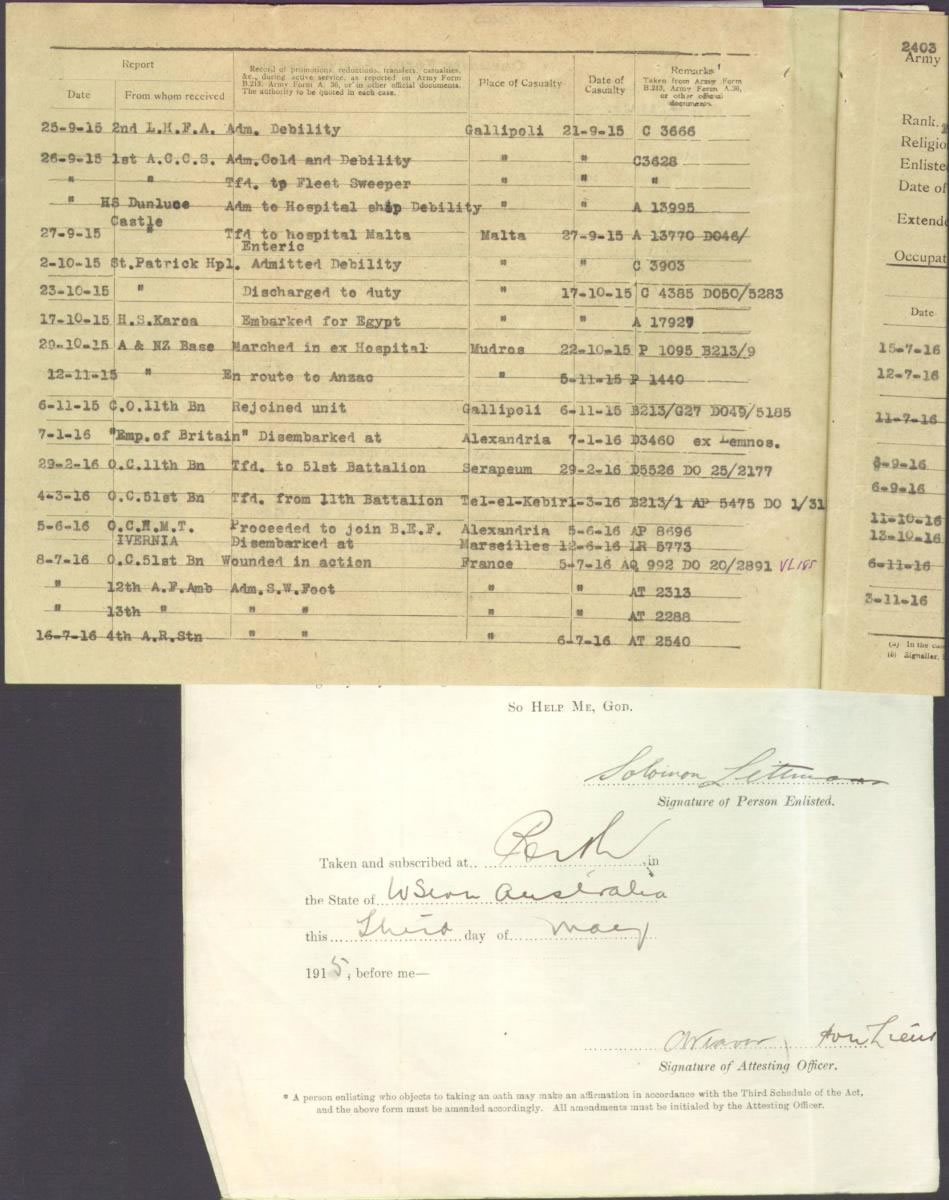 Report
Record of promotions, reductions, transfers, casualties, &c., during active service, as reported on Army Form B.213, Army Form A. 36, or in other official documents. The authority to be quoted in each case.
Place of Casualty
Date of Casualty
Remarks
Taken from Army Form B.213, Army Form A.36, or other official documents.
Date
From whom received
25-9-15 2nd L.H.F.A. Adm. Debility Gallipoli 21-9-15 C 3666
26-9-15 1st A.C.C.S. Adm.Cold and Debility " " C3628
" " Tfd. to Fleet Sweeper " " "
" HS Dunluce Castle Adm to Hospital ship Debility " " A 13995
27-9-15 " Tfd to hospital Malta Malta 27-9-15 A 13770 D046/
Enteric
2-10-15 St.Patrick Hpl. Admitted Debility " " C 3903
23-10-15 " Discharged to duty " 17-10-15 C 4385 D050/5283
17-10-15 H.S.Karoa Embarked for Egypt " " A 17927
29-10-15 A & NZ Base Marched in ex Hospital Mudros 22-10-15 P 1095 B213/9
12-11-15 " En route to Anzac " 5-11-15 P 1440
6-11-15 C.O.11th Bn Rejoined unit Gallipoli 6-11-15 B213/G27 D049/5185
7-1-16 "Emp.of Britain" Disembarked at Alexandria 7-1-16 D3460 ex Lemnos.
29-2-16 O.C.11th Bn Tfd. to 51st Battalion Serapeum 29-2-16 D5526 DO 25/2177
4-3-16 O.C.51st Bn Tfd. from 11th Battalion Tel-el-Kebir 1-3-16 B213/1 AP 5475 DO 1/31
5-6-16 O.C.H.M.T. Proceeded to join B.E.F. Alexandria 5-6-16 AP 8696
IVERNIA Disembarked at Marseilles 12-6-16 LR 5773
8-7-16 O.C.51st Bn Wounded in action France 5-7-16 AQ 992 DO 20/2891 VL185
" 12th A.F.Amb Adm.S.W.Foot " " AT 2313
" 13th " " " " AT 2288
16-7-16 4th A.R.Stn " " " 6-7-16 AT 2540
2403
Army
Rank.
Religio
Enliste
Date of
Extende
Occupat
Date
15-7-16
12-7-16
11-7-16
8-9-16
6-9-16
11-10-16
13-10-16
6-11-16
3-11-16
(a) In the cas
(b) Signaller,
So Help Me, God.
Solomon Littman
Signature of Person Enlisted.
Taken and subscribed at Perth in
the State of WSern Australia
this Third day of May
1915, before me—
Weaver Hon Lieut
Signature of Attesting Officer.
* A person enlisting who objects to taking an oath may make an affirmation in accordance with the Third Schedule of the Act,
and the above form must be amended accordingly. All amendments must be initialed by the Attesting Officer.